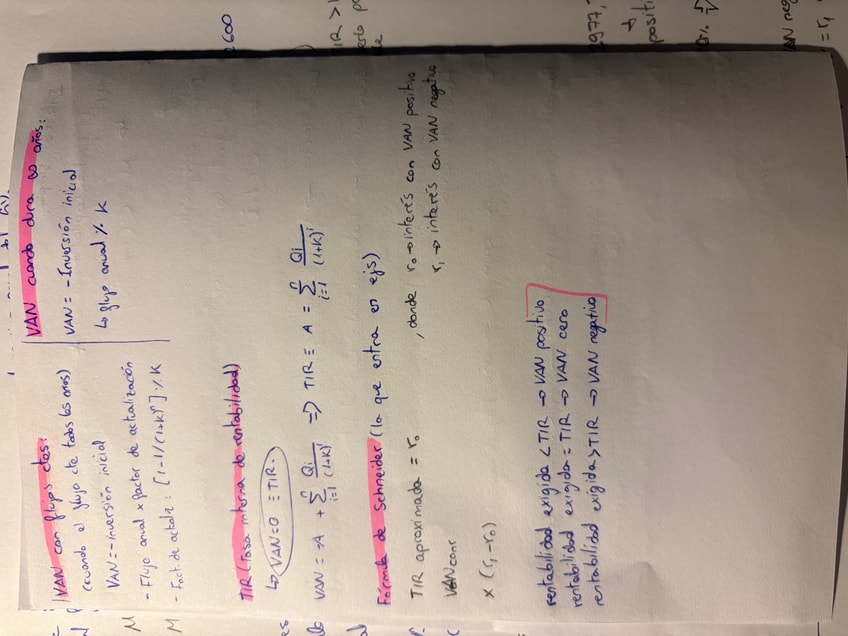 VAN con flujos ctes:
(cuando el flujo cte todos los años)
VAN = -inversión inicial
- Flujo anual x factor de actualización
- Fact. de actualiz: [1-1/(1+K)ⁿ] % K
VAN cuando dura ∞ años:
VAN = -Inversión inicial
↳ flujo anual % K
TIR (Tasa interna de rentabilidad)
↳ VAN=0 ≡ TIR.
VAN = -A + Σ(i=1, n) Qi/(1+K)^i => TIR ≡ A = Σ(i=1, n) Qi/(1+K)^i
Fórmula de Schneider (la que entra en ejs)
TIR aproximada = r₀ , donde r₀ → interés con VAN positivo
r₁ → interés con VAN negativo
VAN con r
x (r₁-r₀)
rentabilidad exigida < TIR → VAN positivo
rentabilidad exigida = TIR → VAN cero
rentabilidad exigida > TIR → VAN negativo
2600